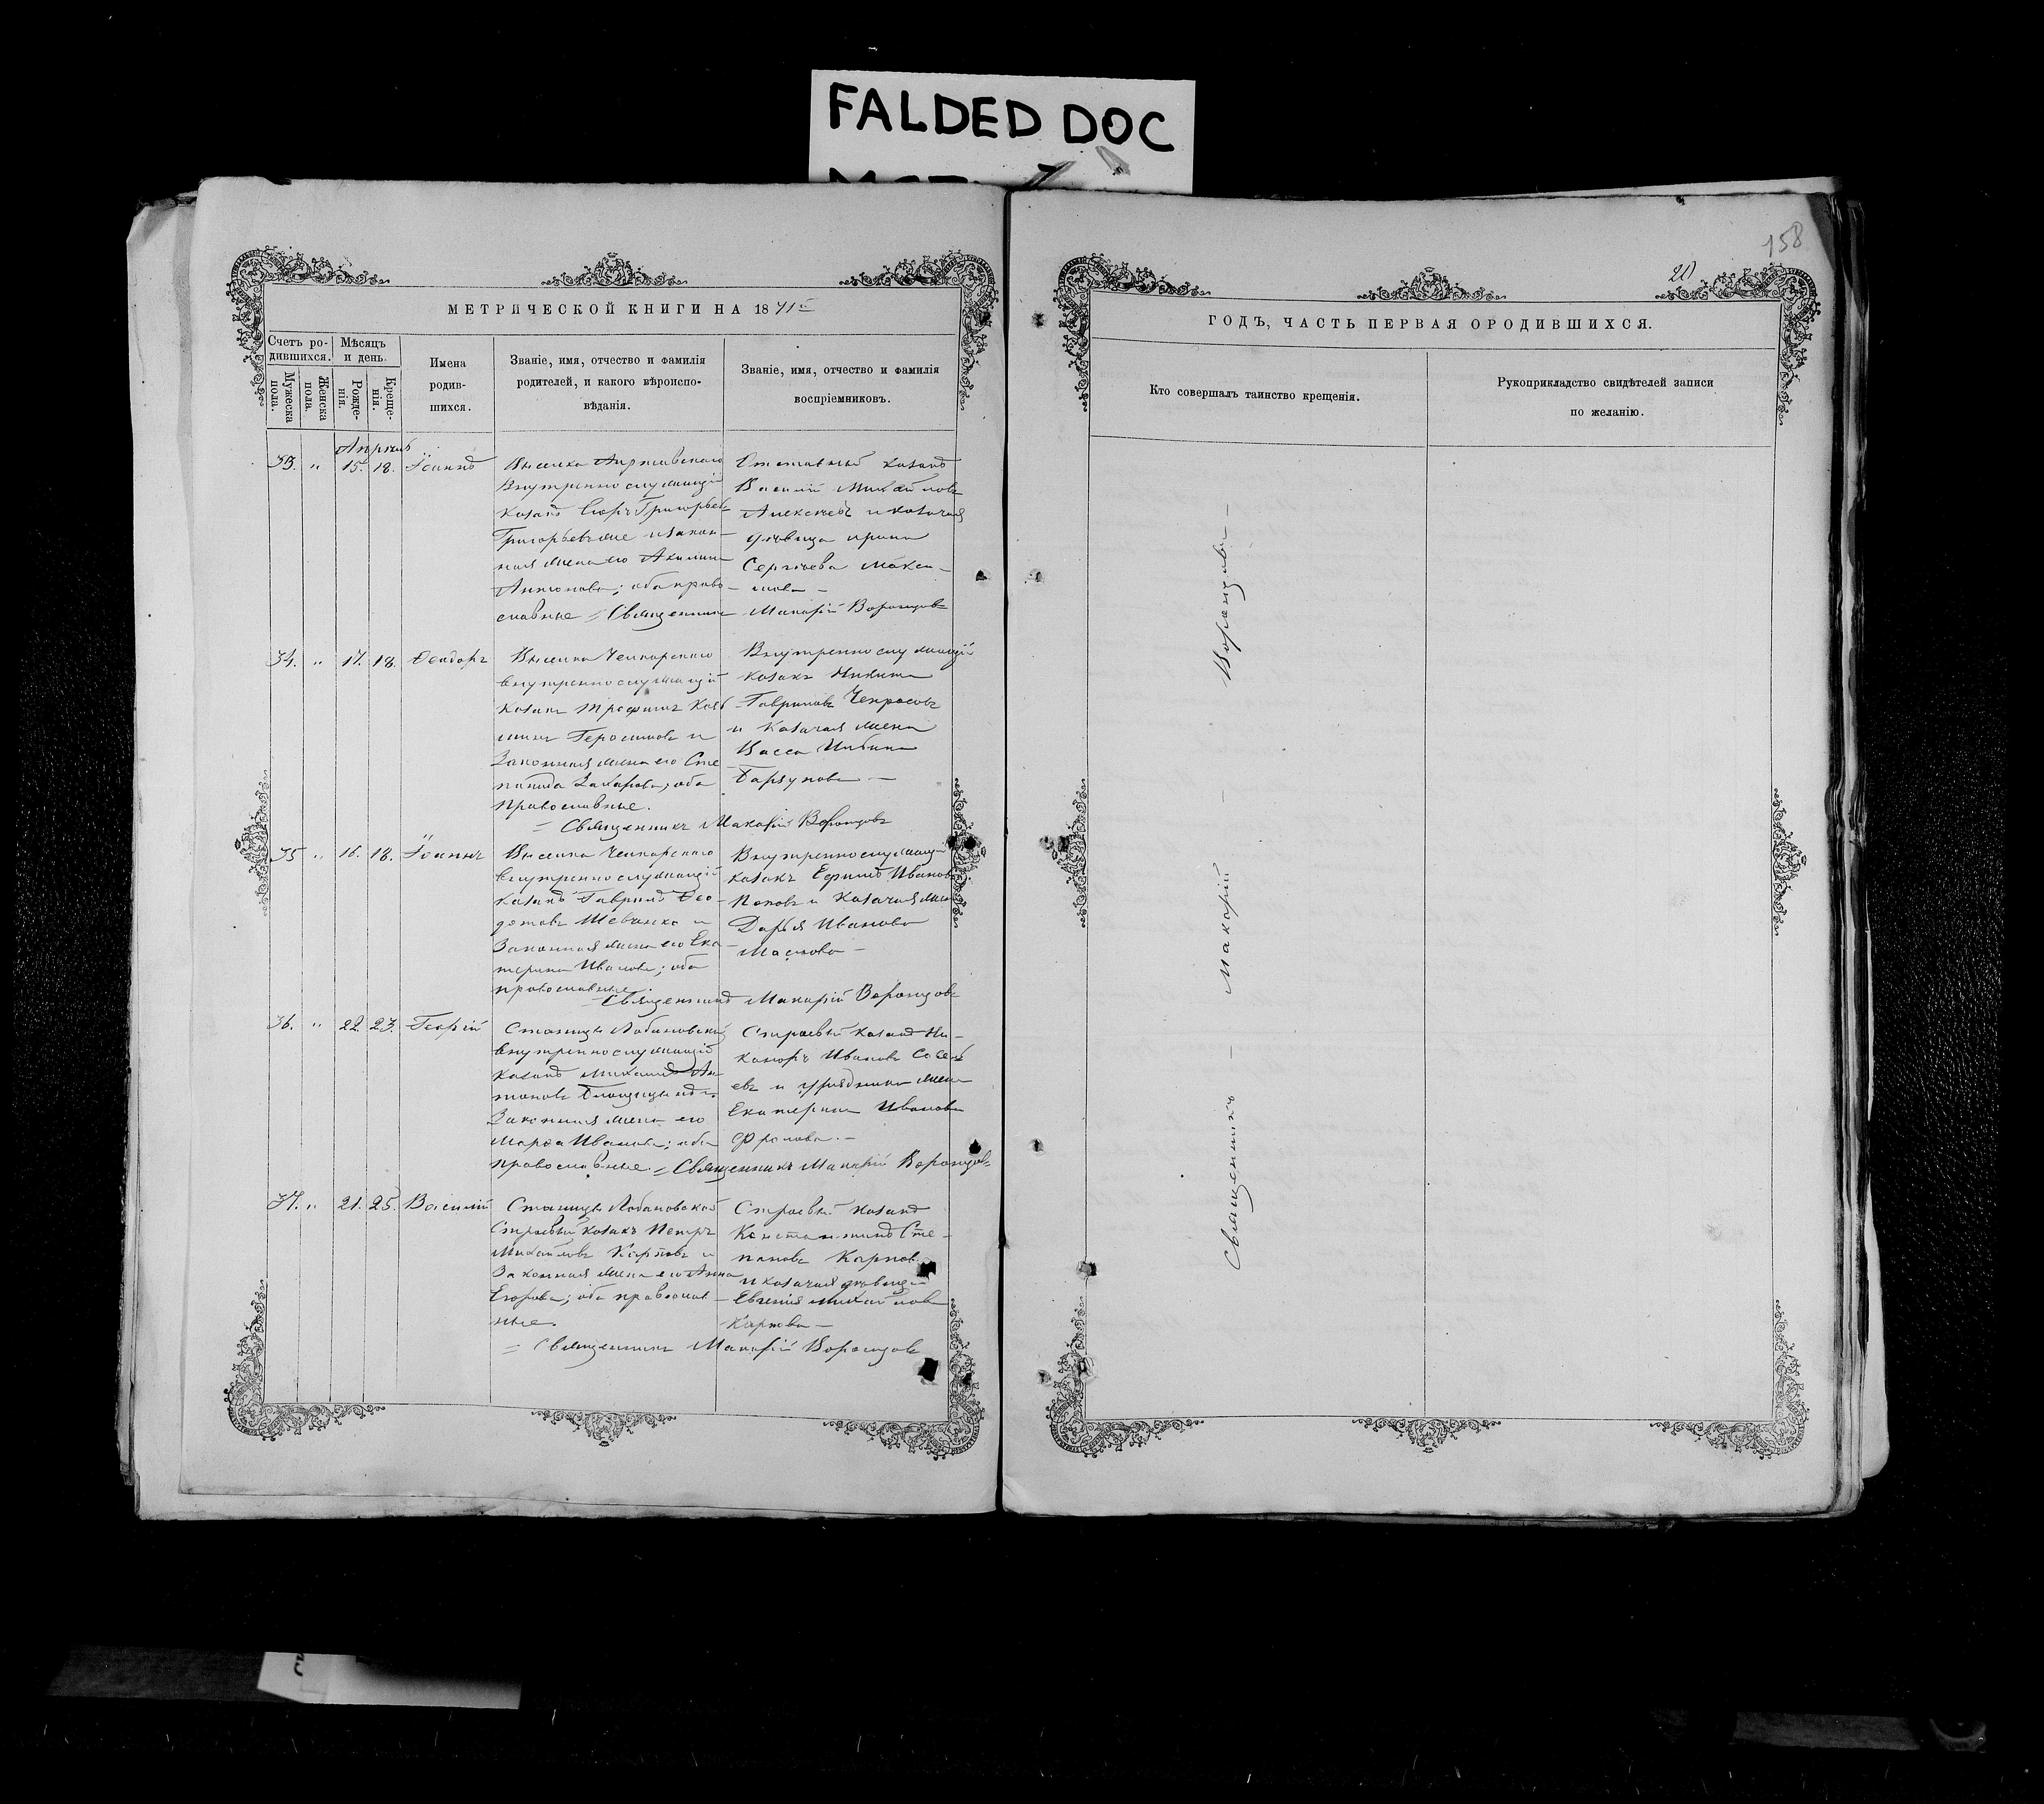 FALDED DOC
158
20
МЕТРИЧЕСКОЙ КНИГИ НА 1871й
ГОДЪ, ЧАСТЬ ПЕРВАЯ О РОДИВШИХСЯ.
Счетъ ро-
дившихся.
Мужеска
пола.
Женска
пола.
Мѣсяцъ
и день.
Рожде-
нія.
Креще-
нія.
Имена
родив-
шихся.
Званіе, имя, отчество и фамилія
родителей, и какого вѣроиспо-
вѣданія.
Званіе, имя, отчество и фамилія
воспріемниковъ.
Кто совершалъ таинство крещенія.
Рукоприкладство свидѣтелей записи
по желанію.
Апрѣль
33. " 15. 18. Іоаннъ
Выселка
Внутреннослужащій
казакъ Егоръ Григорьевъ
Григорьевъ и закон-
ная жена его Акилина
Антонова; оба право-
славные = Священникъ Макарій Воронцовъ
Отставный казакъ
Василій Михайловъ
Алексѣевъ и казачья
дѣвица Ирина
Сергѣева Макси-
мова —
34. " 17. 18. Ѳеодоръ
Выселка Челкарскаго
внутреннослужащій
казакъ Трофимъ Козь
минъ Герасимовъ и
Законная жена его Сте
панида Захарова; оба
Православные.
= Священникъ Макарій Воронцовъ
Внутреннослужащій
казакъ Никита
Гавриловъ Чепрасовъ
и Казачья жена
Васса
35 " 16. 18. Іоаннъ
Выселка Челкарскаго
внутреннослужащій
казакъ Гавріилъ Ѳео-
дотовъ Шевченко и
Законная жена его Ека-
терина Иванова; оба
православные.
= Священникъ Макарій Воронцовъ
Внутреннослужащій
казакъ Ефимъ Ивановъ
Поповъ и Казачья жена
Дарья Иванова
Маслова —
36. " 22. 23. Георгій
Станицы Лобановской
внутреннослужащій
казакъ Михаилъ Ан-
тоновъ
Законная жена его
Марѳа Иванова; оба
православные. = Священникъ Макарій Воронцовъ
Строевый казакъ Ни-
каноръ Ивановъ
евъ и урядника жена
Екатерина Иванова
Фролова. —
37. " 21. 25. Василій
Станицы Лобановской
Строевый казакъ Петръ
Михайловъ Карповъ и
Законная жена его Анна
Егорова; оба православ-
ные.
= Священникъ Макарій Воронцовъ
Строевый казакъ
Константинъ Сте-
пановъ Карповъ
и казачья дѣвица
Евгенія Михайлова
Карпова —
Священникъ — Макарій — Воронцовъ —